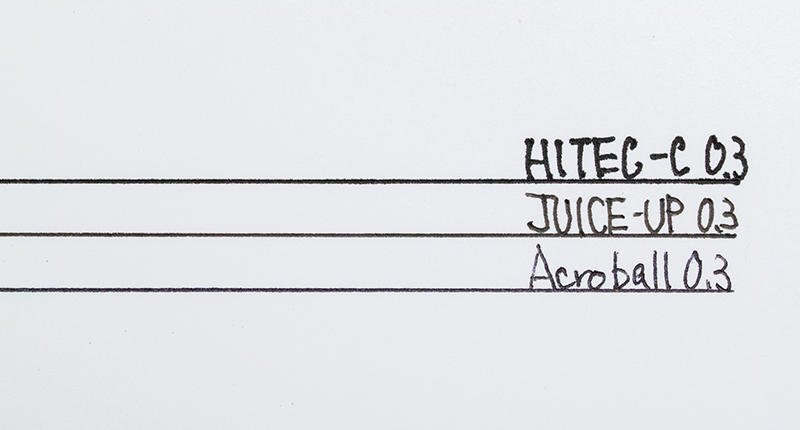 HITEC-C 0.3
JUICE-UP 0.3
Acroball 0.3